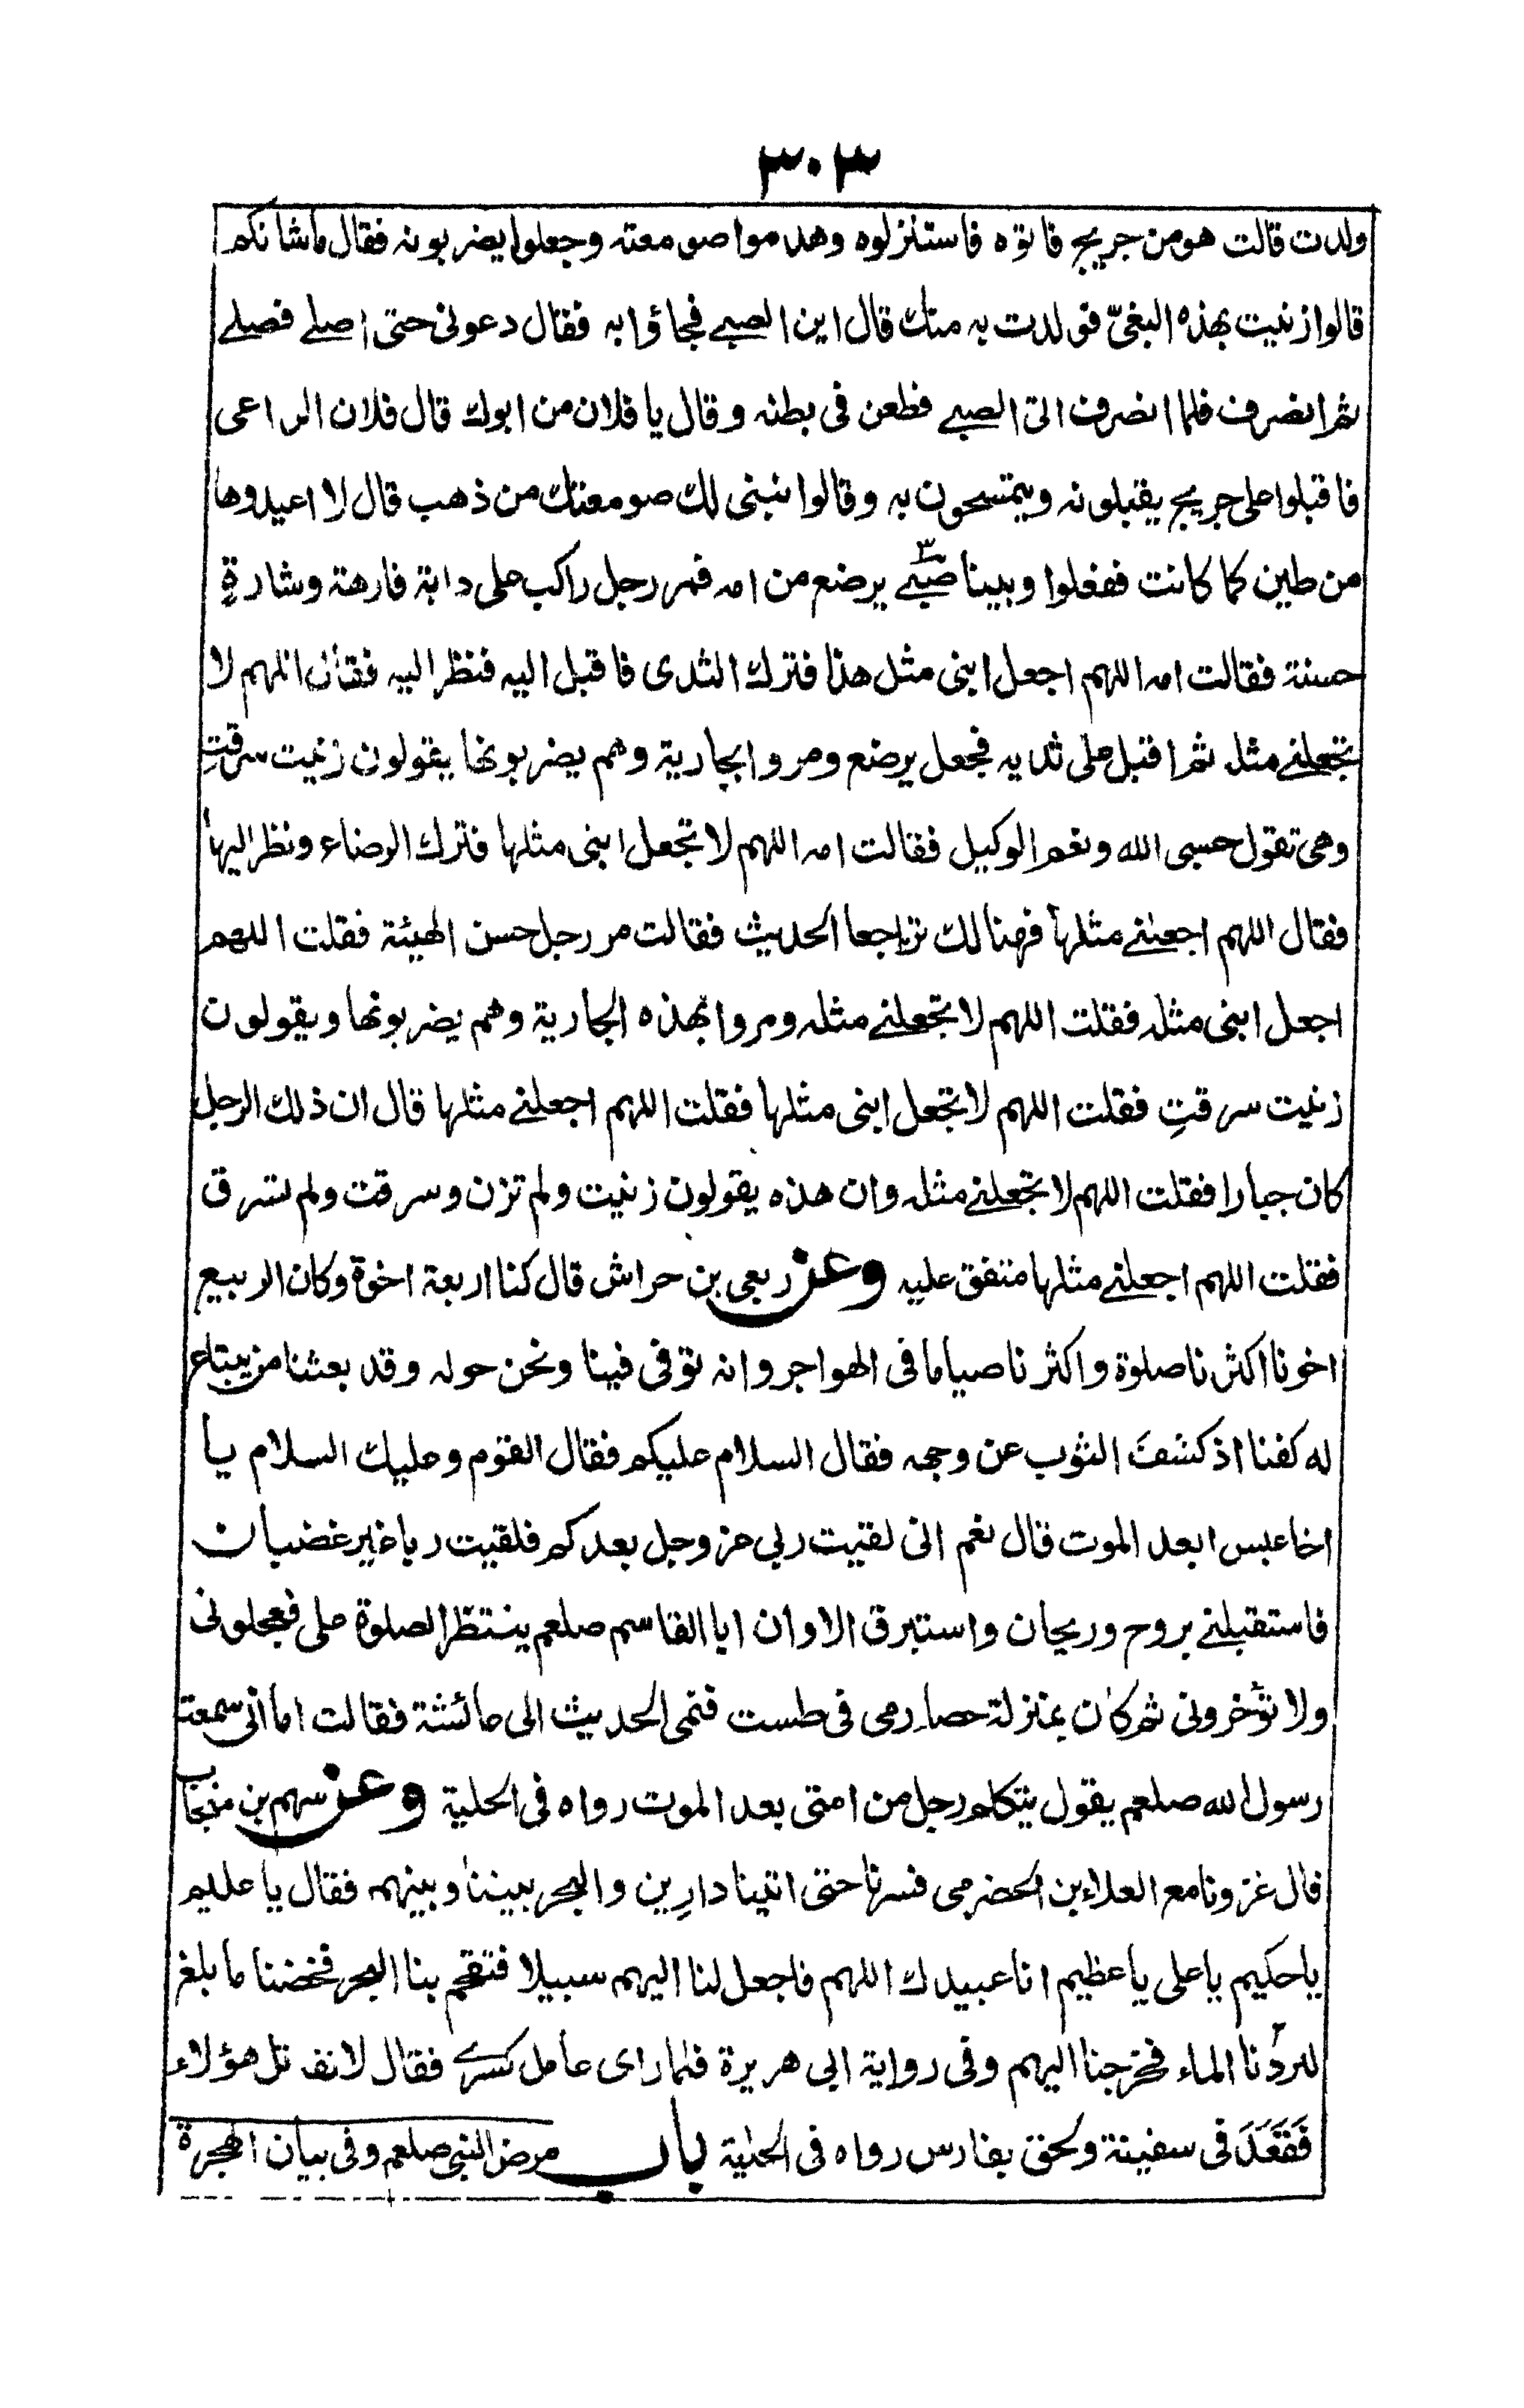 ٣٠٣
ولدت قالت هو من جريج فاتوه فاستنزلوه وهدموا صومعته وجعلوا يضربونه فقال ماشانكم
قالوا زنيت بهذه البغيّ فولدت به منك قال اين الصبے فجاؤا به فقال دعونى حتى اصلے فصلے
ثم انصرف فلما انصرف اتى الصبے فطعن فى بطنه وقال يا فلان من ابوك قال فلان الراعى
فاقبلوا على جريج يقبلونه ويتمسحون به وقالوا نبنى لك صومعتك من ذهب قال لا اعيدوها
من طين كما كانت ففعلوا وبينا صبّے يرضع من امه فمر رجل راكب على دابة فارهة وشارةٍ
حسنة فقالت امه اللهم اجعل ابنى مثل هذا فترك الثدى فاقبل اليه فنظر اليه فقال اللهم لا
تجعلنے مثله ثم اقبل على ثديه فجعل يرضع ومروا بجارية وهم يضربونها يقولون زنيت سرقتِ
وهى تقول حسبى الله ونعم الوكيل فقالت امه اللهم لا تجعل ابنى مثلها فترك الرضاع ونظر اليها
فقال اللهم اجعلنے مثلها فهنالك تراجعا الحديث فقالت مر رجل حسن الهيئة فقلت اللهم
اجعل ابنى مثله فقلت اللهم لا تجعلنے مثله ومروا بهذه الجارية وهم يضربونها ويقولون
زنيت سرقتِ فقلت اللهم لا تجعل ابنى مثلها فقلت اللهم اجعلنے مثلها قال ان ذلك الرجل
كان جبارا فقلت اللهم لا تجعلنے مثله وان هذه يقولون زنيت ولم تزن وسرقت ولم تسرق
فقلت اللهم اجعلنے مثلها متفق عليه وعن ربعى بن حراش قال كنا اربعة اخوة وكان الربيع
اخونا اكثرنا صلوة واكثرنا صياما فى الهواجر وانه توفى فبينا ونحن حوله وقد بعثنا من يبتاع
له كفنا اذ كشفَ الثوب عن وجهه فقال السلام عليكم فقال القوم وعليك السلام يا
اخا عبس ابعد الموت قال نعم انى لقيت ربى عز وجل بعدكم فلقيت ربا غير غضبان
فاستقبلنے بروح وريحان واستبرق الا وان ابا القاسم صلعم ينتظر الصلوة على فعجلونى
ولا تؤخرونى ثم كان بمنزلة حصاة رمى فى طست فنمى الحديث الى عائشة فقالت اما انى سمعت
رسول الله صلعم يقول يتكلم رجل من امتى بعد الموت رواه فى الحلية وعن سهم بن منجاب
قال غزونا مع العلاء بن الحضرمى فسرنا حتى اتينا دارِين والبحر بيننا وبينهم فقال يا عليم
يا حكيم يا على يا عظيم انا عبيدك اللهم فاجعل لنا اليهم سبيلا فتقحم بنا البحر فخضنا ما بلغ
لبردنا الماء فخرجنا اليهم وفى رواية ابى هريرة فلما راى عامل كسرے فقال لا نقاتل هؤلاء
فَقَعَدَ فى سفينة ولحق بفارس رواه فى الحلية باب مرض النبى صلعم وفى بيان الهجرة